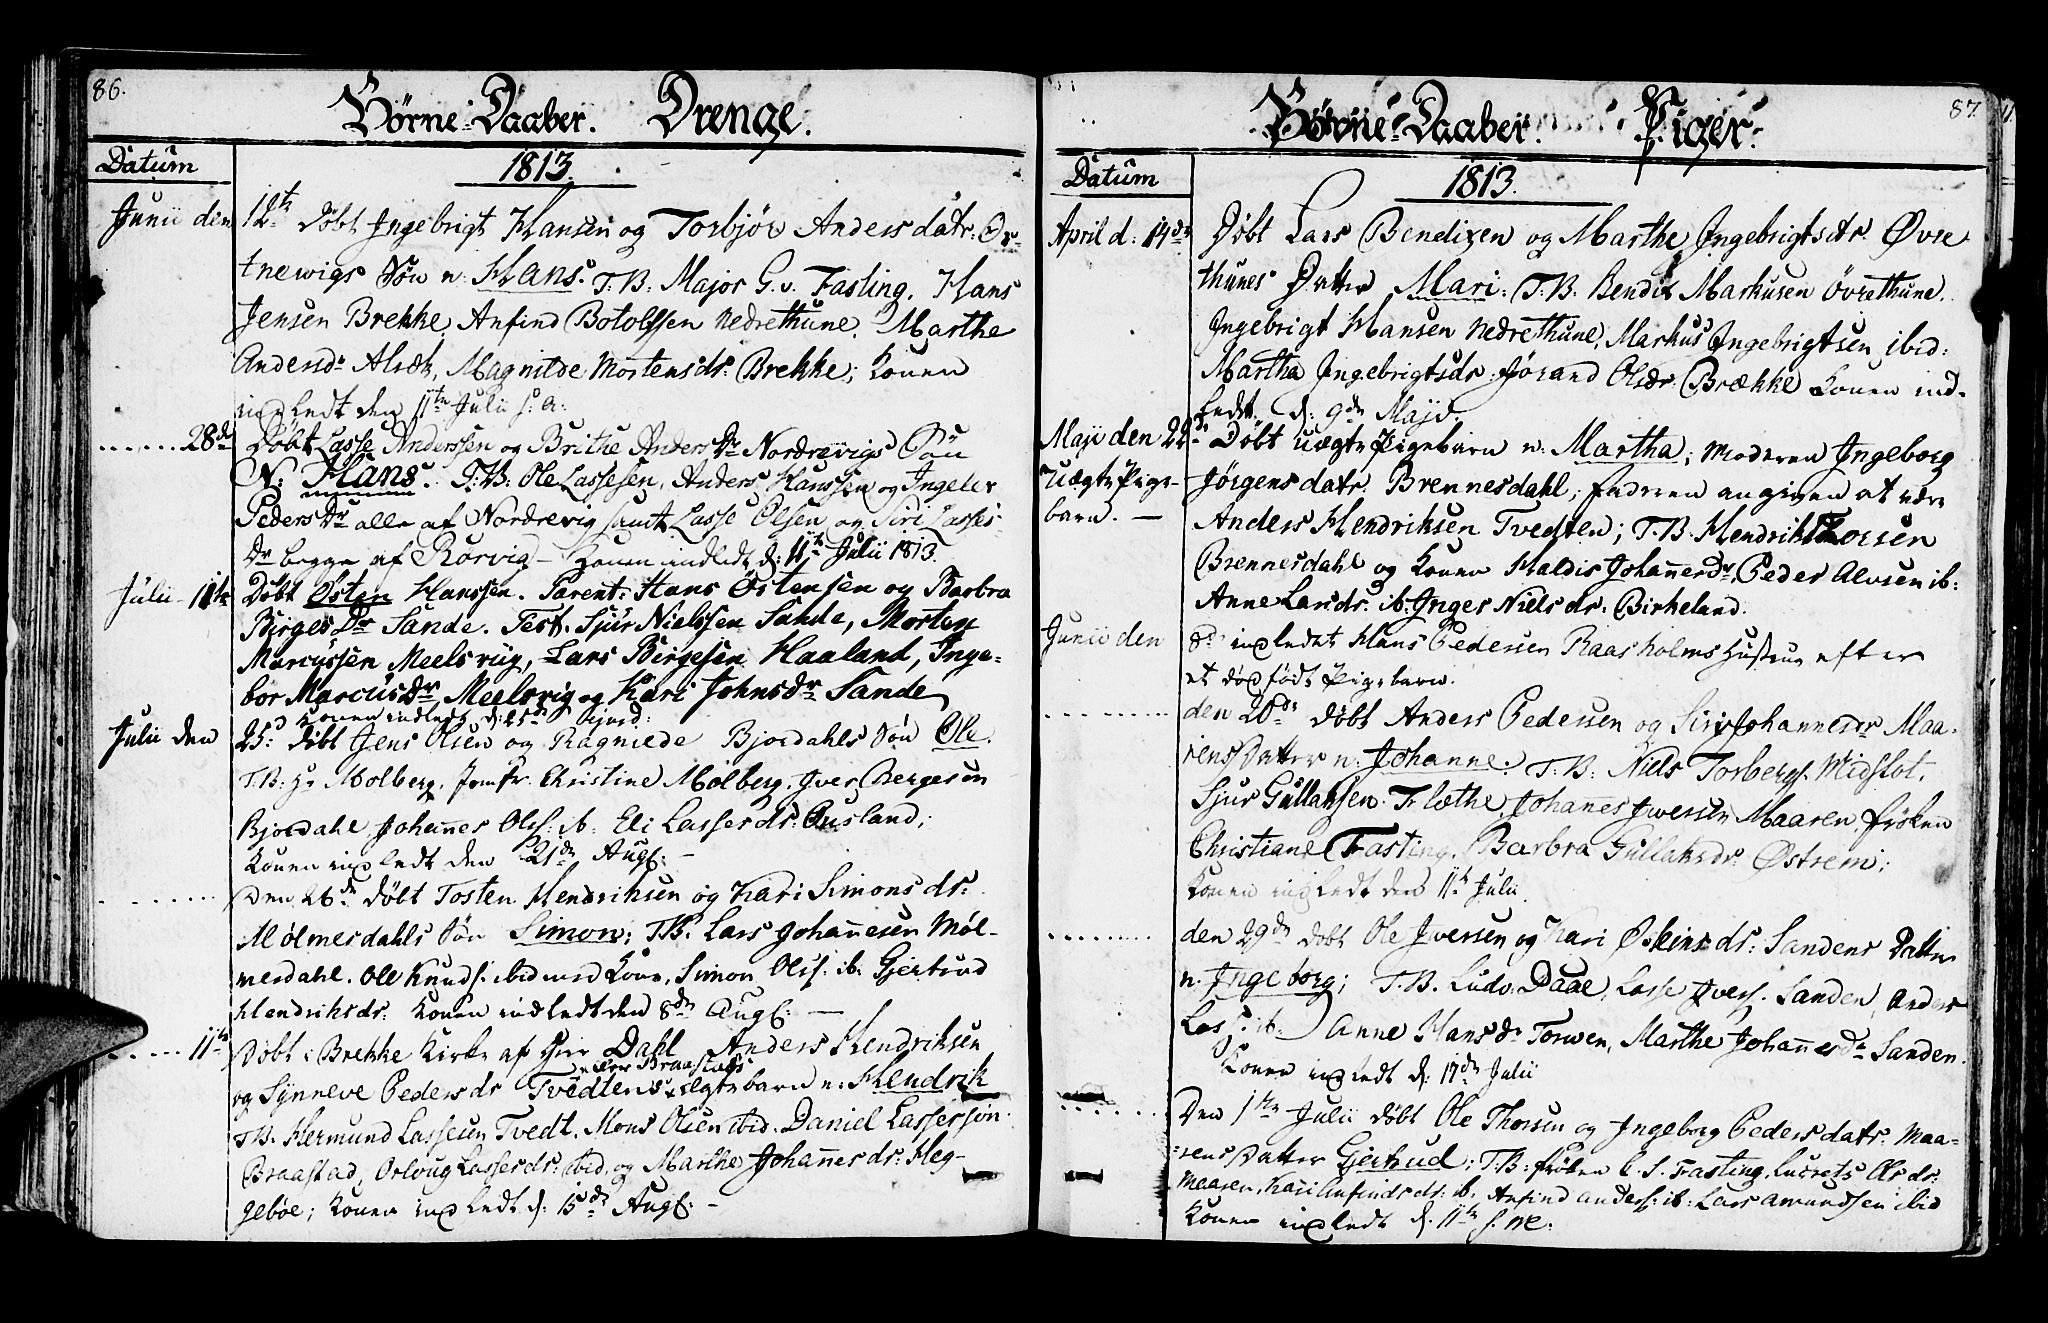 86.
Børne-Daaber. Drenge.
Datum
1813.
Junii den 12te Døbt Ingebrigt Hansen og Torbjør Andersdatr: Or-
tnewigs Søn n: Hans. T.B: Major G. v. Fasting. Hans
Jensen Brekke, Anfind Botolfsen Nedrethune. Marthe
Andersdr Alræk, Magnilde Mortensdr: Brekke; Konen
indledt den 11te Julii s. a:
......28de Døbt Lasse Anderssen og Brithe Anders Dr Nordrevigs Søn
N: Hans. T:B: Ole Lassesen, Anders Hanssen og Ingeler
Peders Dr alle af Nordrevig samt Lasse Olsen og Siri Lasses-
Dr begge af Rørvig - Konen indledt d: 11te Julii 1813.
Julii 11te Døbt Østen Hanssen. Parent: Hans Østensen og Barbra
Birges Dr Sande. Test. Sjur Nielssen Sande, Morten
Marcussen Meelsvig, Lars Birgesen Haaland, Inge-
bor Marcus Dr Meelsvig og Kari Johns Dr Sande
Konen indledt d: 25de
Julii den 25: Døbt Jens Olsen og Ragnilde Bjordahls Søn Ole.
T.B: Hr Molberg, Jomfr. Christine Molberg, Iver Bergesen
Bjordahl, Johannes Ols: ib: Eli Lassesdr: Ousland;
Konen indledt den 21de Aug: -
......... Den 26de Døbt Tosten Hendriksen og Kari Simonsdr:
Mølmesdahls Søn Simon; T.B. Lars Johannesen Møl-
mesdahl. Ole Knuds: ibid med Kone, Simon Ols: ib: Gjertrud
Hendriksdr: Konen indledt den 8de Aug: -
..... 11te Døbt i Brekke Kirke af Herr Dahl Anders Hendriksen
eller Braastads
og Synneve Pedersdr Tvedtens ægte barn n: Hendrik
T.B. Hermund Lassesen Tvedt. Mons Olsen ibid. Daniel Lassessøn
Braastad, Orloug Lassesdr: ibid, og Marthe Johannesdr: Heg-
gebøe; Konen indledt d: 15de Aug: -
87.
Børne-Daaber. Piger.
Datum
1813.
April d: 19de Døbt Lars Bendixen og Marthe Ingebrigtsdtr. Øvre
thunes Datter Mari. T.B. Bendix Markusen Øvrethune.
Ingebrigt Hansen Nedrethune, Markus Ingebrigtsen ibid:
Martha Ingebrigtsdr. Jørand Olsdr. Brække Konen ind-
ledt d: 9de Maji.
Maji den 22de Døbt Uægte Pigebarn n: Martha; Moderen Ingeborg
Uægte Pige-
barn. -
Jørgensdatr. Brennesdahl, faderen angiven at være
Anders Hendriksen Tvedten; T.B. Hendrik Thorsen
Brennesdahl og Konen Haldis Johannesdr Peder Alvsen ib:
Anne Larsdr. ib. Inger Nielsdr: Birkeland.
Junii den 8de indledet Hans Pedersen Raasholms Hustrue efter
et dødfødt Pigebarn.
......... den 20de Døbt Anders Pedersen og Siri Johannesdr Maa-
rens Datter n: Johanne. T.B: Niels Torbergs. Midtlot.
Sjur Gullaksen Flæthe, Johannes Iversen Maaren, frøken
Christiane Fasting. Barbra Gullaksdr: Østrem;
Konen indledt den 11te Julii.
......... den 29de Døbt Ole Iversen og Kari Østensdr: Sandens Datter
n. Ingeborg; T.B. Ludv. Daae, Lasse Ivers. Sanden, Anders
Las: ib: Anne Hansdr Torwen, Marthe Johannesdr Sanden.
Konen indledt d: 17de Julii
......... Den 1ste Julii Døbt Ole Thorsen og Ingeborg Pedersdatr. Maa-
rens Datter Gjertrud; T.B: frøken C. S. Fasting, Lucrets Olsdr:
Maaren, Kari Anfindsdr: ib. Anfind Anders: ib: Lars Amundsen ibid
Konen indledt d. 11te s. M: